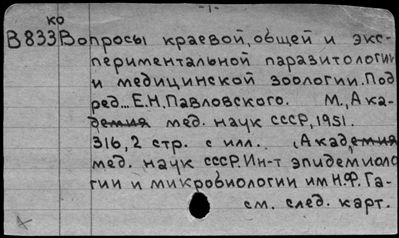 -1-
ко
В833 Вопросы краевой, общей и экс-
периментальной паразитологии
и медицинской зоологии. Под
ред... Е.Н. Павловского. М., Ака-
демия мед. наук СССР, 1951.
316, 2 стр. с илл. (Академия
мед. наук СССР. Ин-т эпидемиоло
гии и микробиологии им Н.Ф. Га-
см. след. карт.